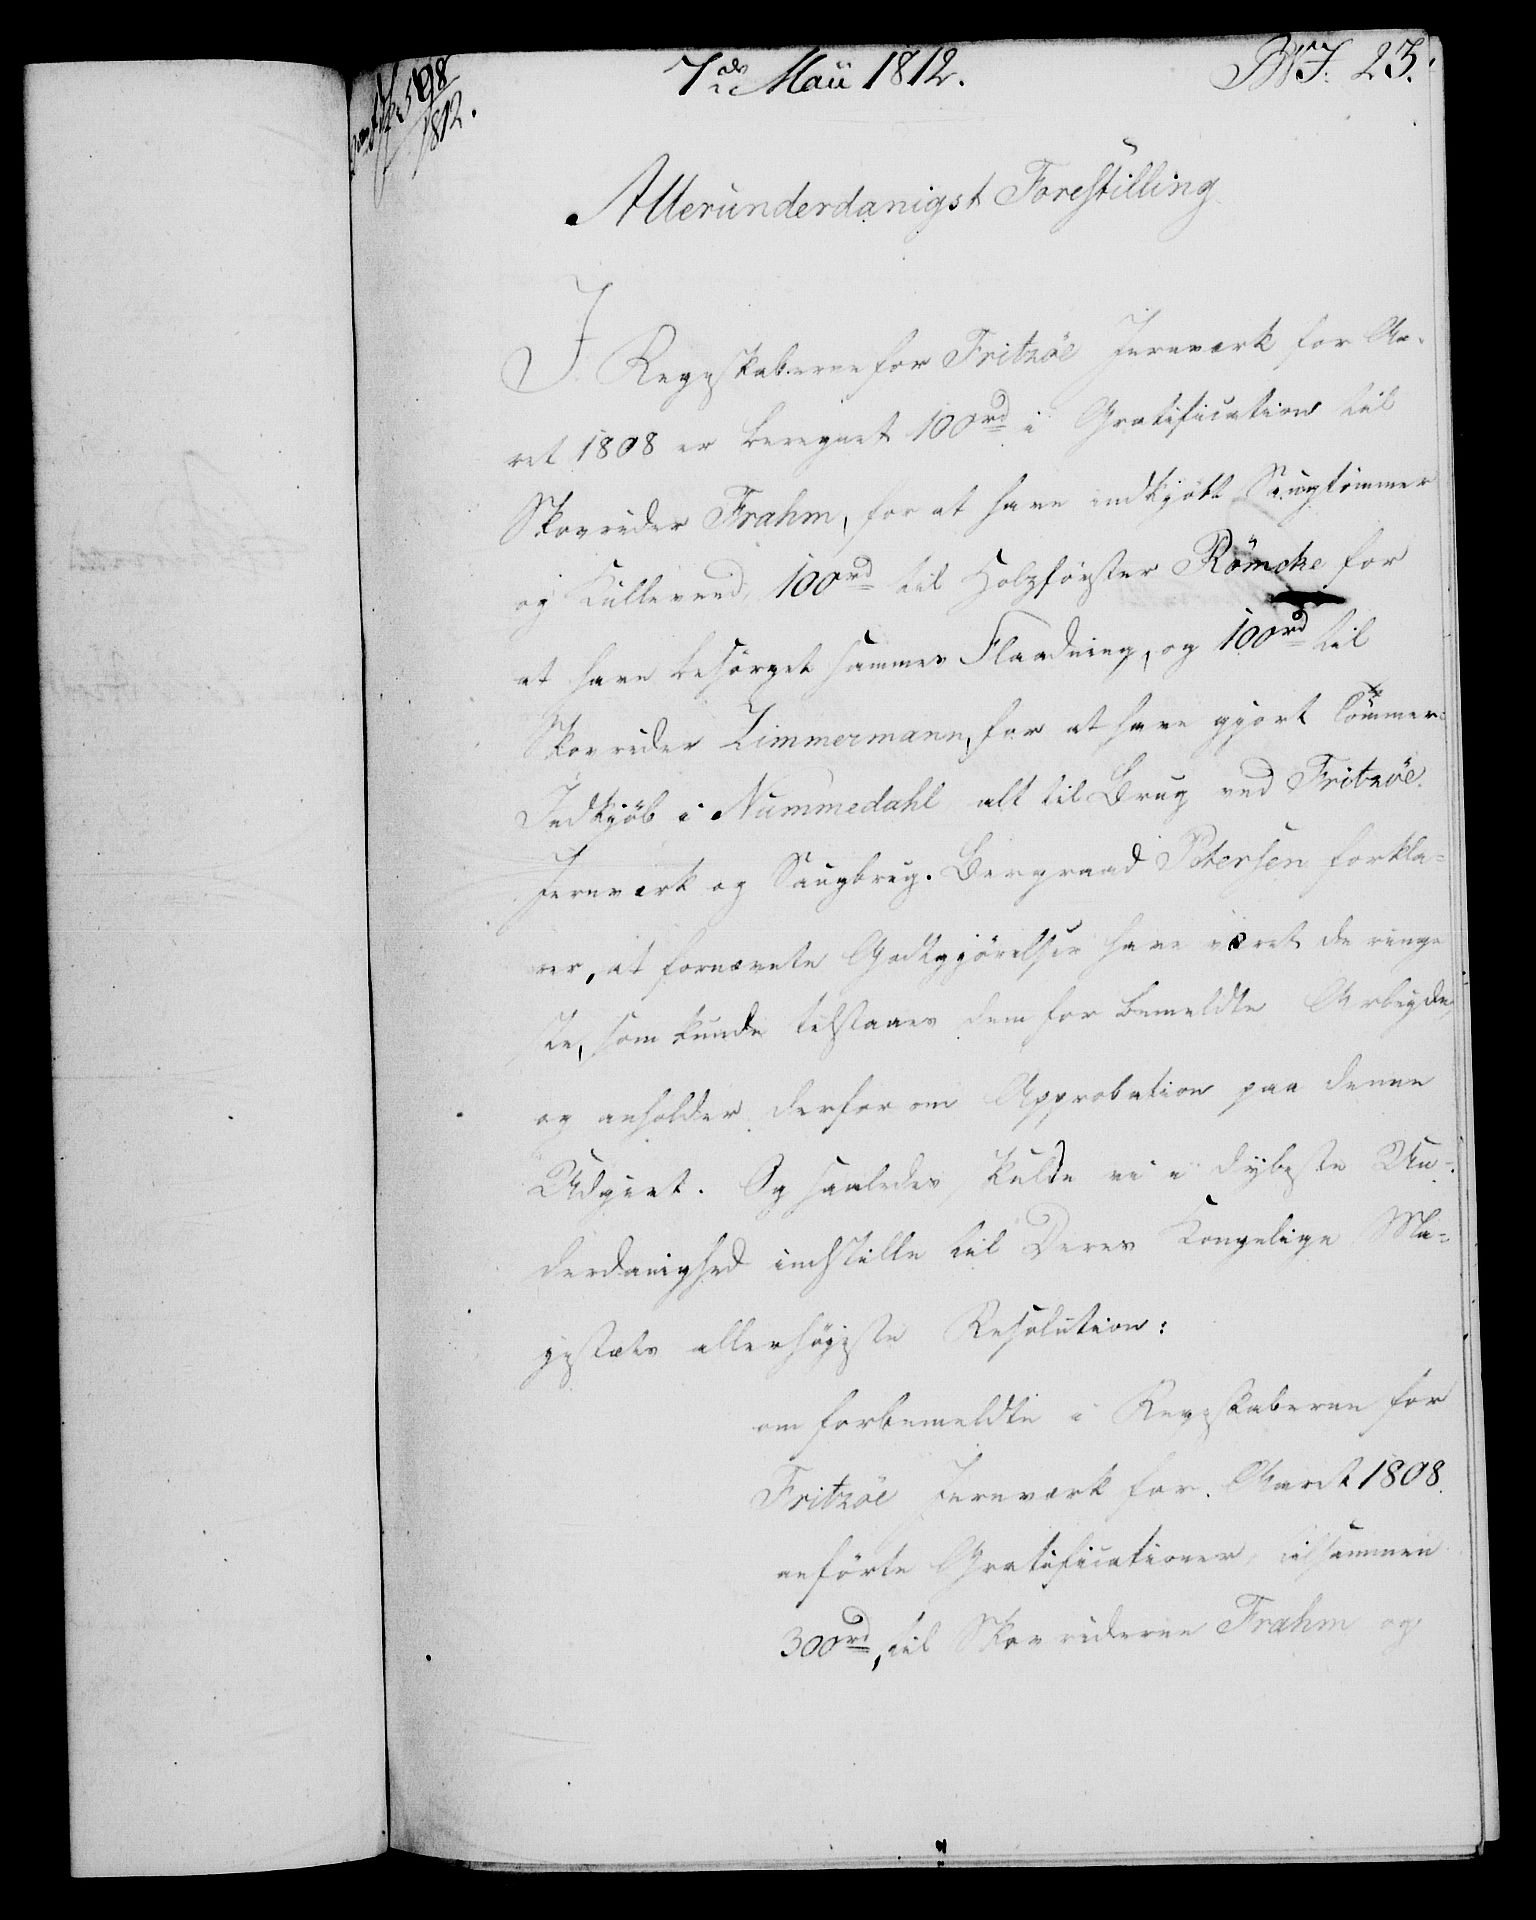 598
1812.
7de Maii 1812.
23.
Allerunderdanigst Forestilling
I Regnskaberne for Fritzöe Jernværk for Aa-
ret 1808 er beregnet 100rd i Gratification til
Skovrider Frahm, for at have indkjöbt Saugtömmer
og Kulleveed, 100rd til Holzförster Römcke for
at have besörget sammes Flaadning, og 100rd til
Skovrider Zimmermann, for at have gjort Tömmer-
Indkjöb i Nummedahl alt til Brug ved Fritzöe
Jernværk og Saugbrug. Bergraad Petersen forkla-
rer, at fornævnte Godtgjörelser have været de ringe
ste, som kunde tilstaaes dem for bemeldte Arbeyde,
og anholder derfor om Approbation paa denne
Udgivt. Og saaledes skulde vi i dybeste Un-
derdanighed indstille til Deres Kongelige Ma-
jestæts allerhöjeste Resolution:
om forbemeldte i Regnskaberne for
Fritzöe Jernværk for Aaret 1808
anförte Gratificationer, tilsammen
300rd, til Skovriderne Frahm og